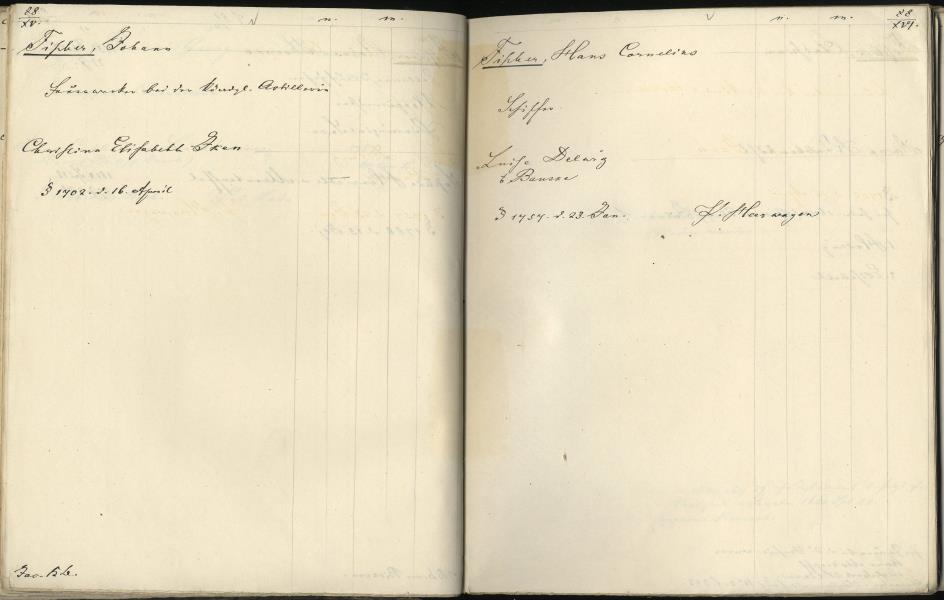 88
XV.
n.
m.
Fischer, Johann
Feuerwerker bei der Königl. Artillerie
Christina Elisabeth Iken
§ 1702. d. 16. April
Jac. Kb.
88
XVI.
n.
m.
Fischer, Hans Cornelius
Schiffer.
Luise Delwig
§ 1757. d. 23. Jan.